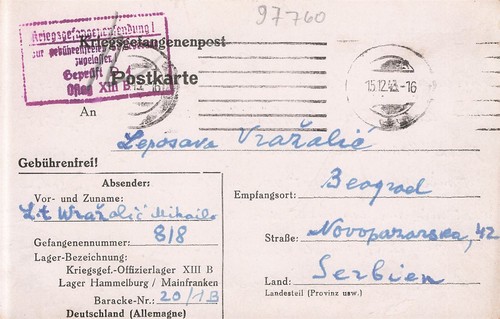 97760
Kriegsgefangenensendung!
zur gebührenfreien
zugelassen.
Geprüft
Oflag XIII B
Kriegsgefangenenpost
Postkarte
15.12.43.-16
An
Leposava Vražalić
Gebührenfrei!
Absender:
Vor- und Zuname:
Lt Wražalić Mihailo
Gefangenennummer:
818
Lager-Bezeichnung:
Kriegsgef.-Offizierlager XIII B
Lager Hammelburg / Mainfranken
Baracke-Nr.: 20/1B
Deutschland (Allemagne)
Empfangsort: Beograd
Straße: Novopazarska, 42
Land: Serbien
Landesteil (Provinz usw.)